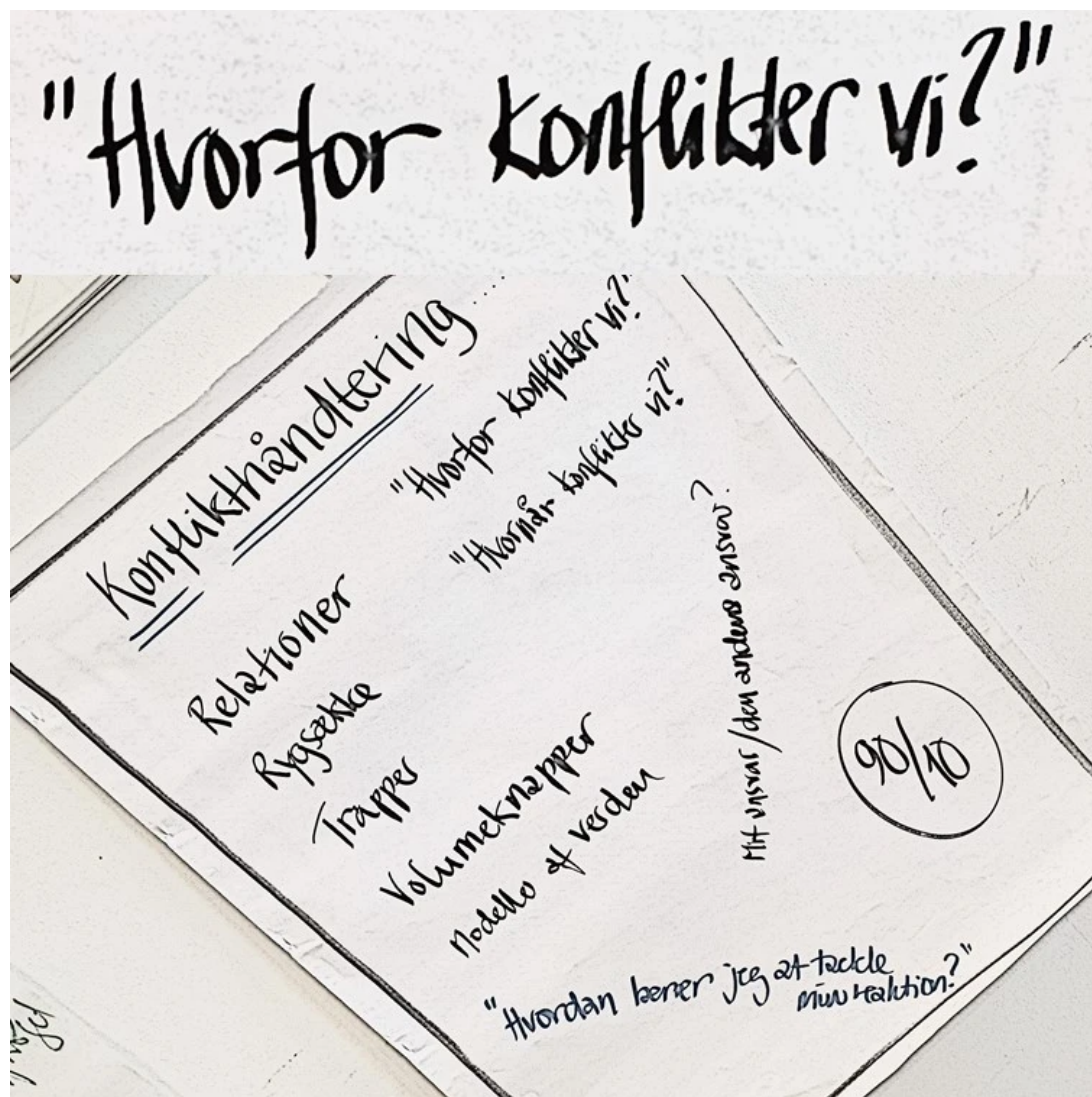 "Hvorfor konflikter vi?"
Konflikthåndtering....
"Hvorfor konflikter vi?"
"Hvornår konflikter vi?"
Relationer
Rygsække
Trapper
Volumeknapper
Modeller af verden
Mit ansvar/den andens ansvar?
90/10
"Hvordan lærer jeg at tackle
min reaktion?"